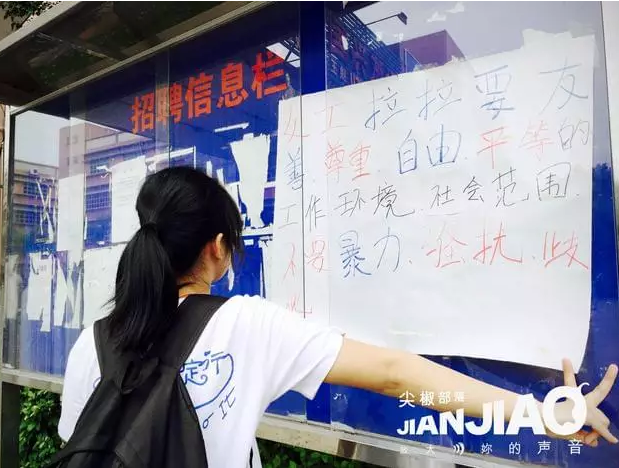 招聘信息栏
女工拉拉要友
善.尊重.自由.平等的
工作环境.社会范围.
不要暴力.性骚扰.歧
视
定行
尖椒部落
JIANJIAO
放大 妳的声音